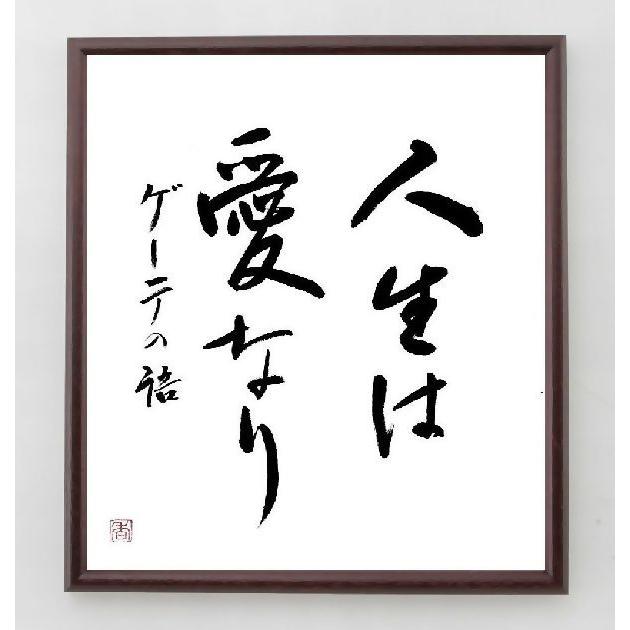 人生は
愛なり
ゲーテの語